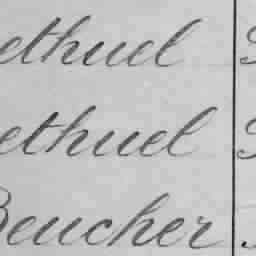 ethuel
ethuel
Beucher